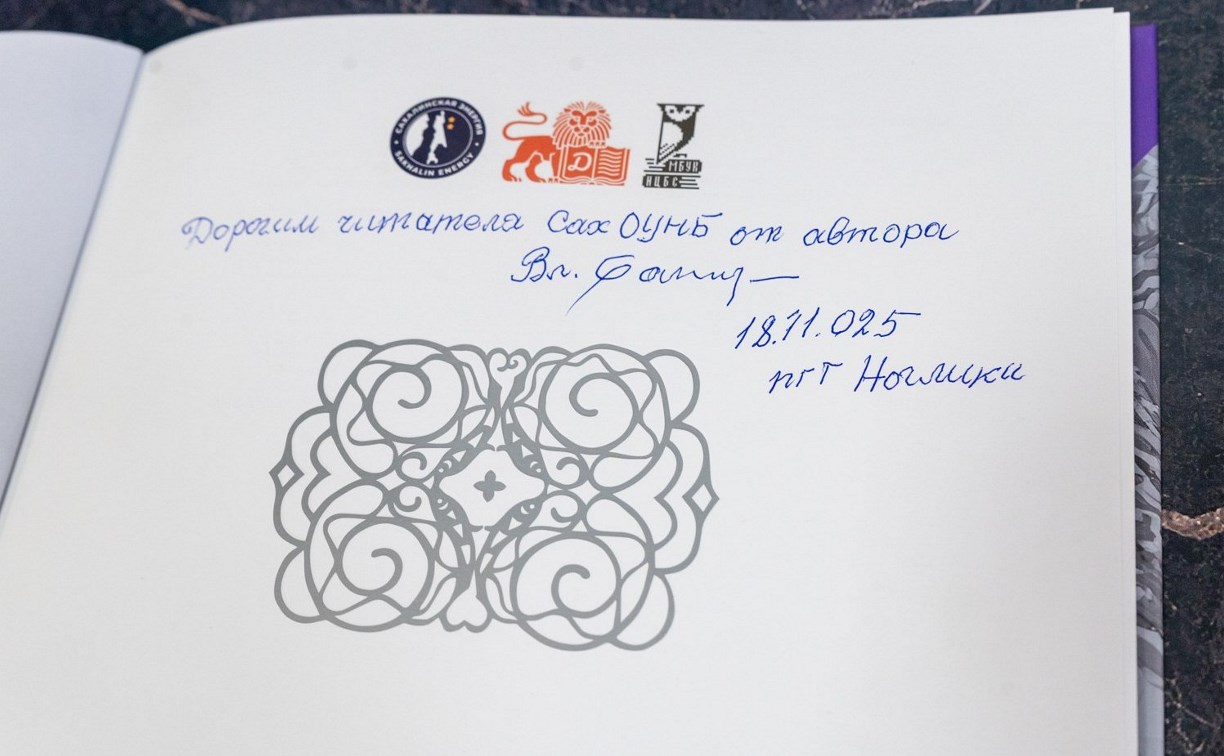 САХАЛИНСКАЯ ЭНЕРГИЯ
SAKHALIN ENERGY
Д
МБУК
НЦБС
Дорогим читатела СахОУНБ от автора
Вл.
18.11.025
пгт Ноглики